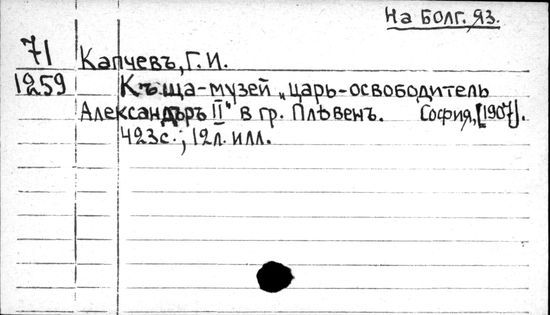 На Болг. яз.
71
1259
Капчевъ, Г. И.
Къща-музей „царь-освободитель
Александъръ II" в гр. Плѣвенъ. София, [1907].
423с.; 12л. илл.